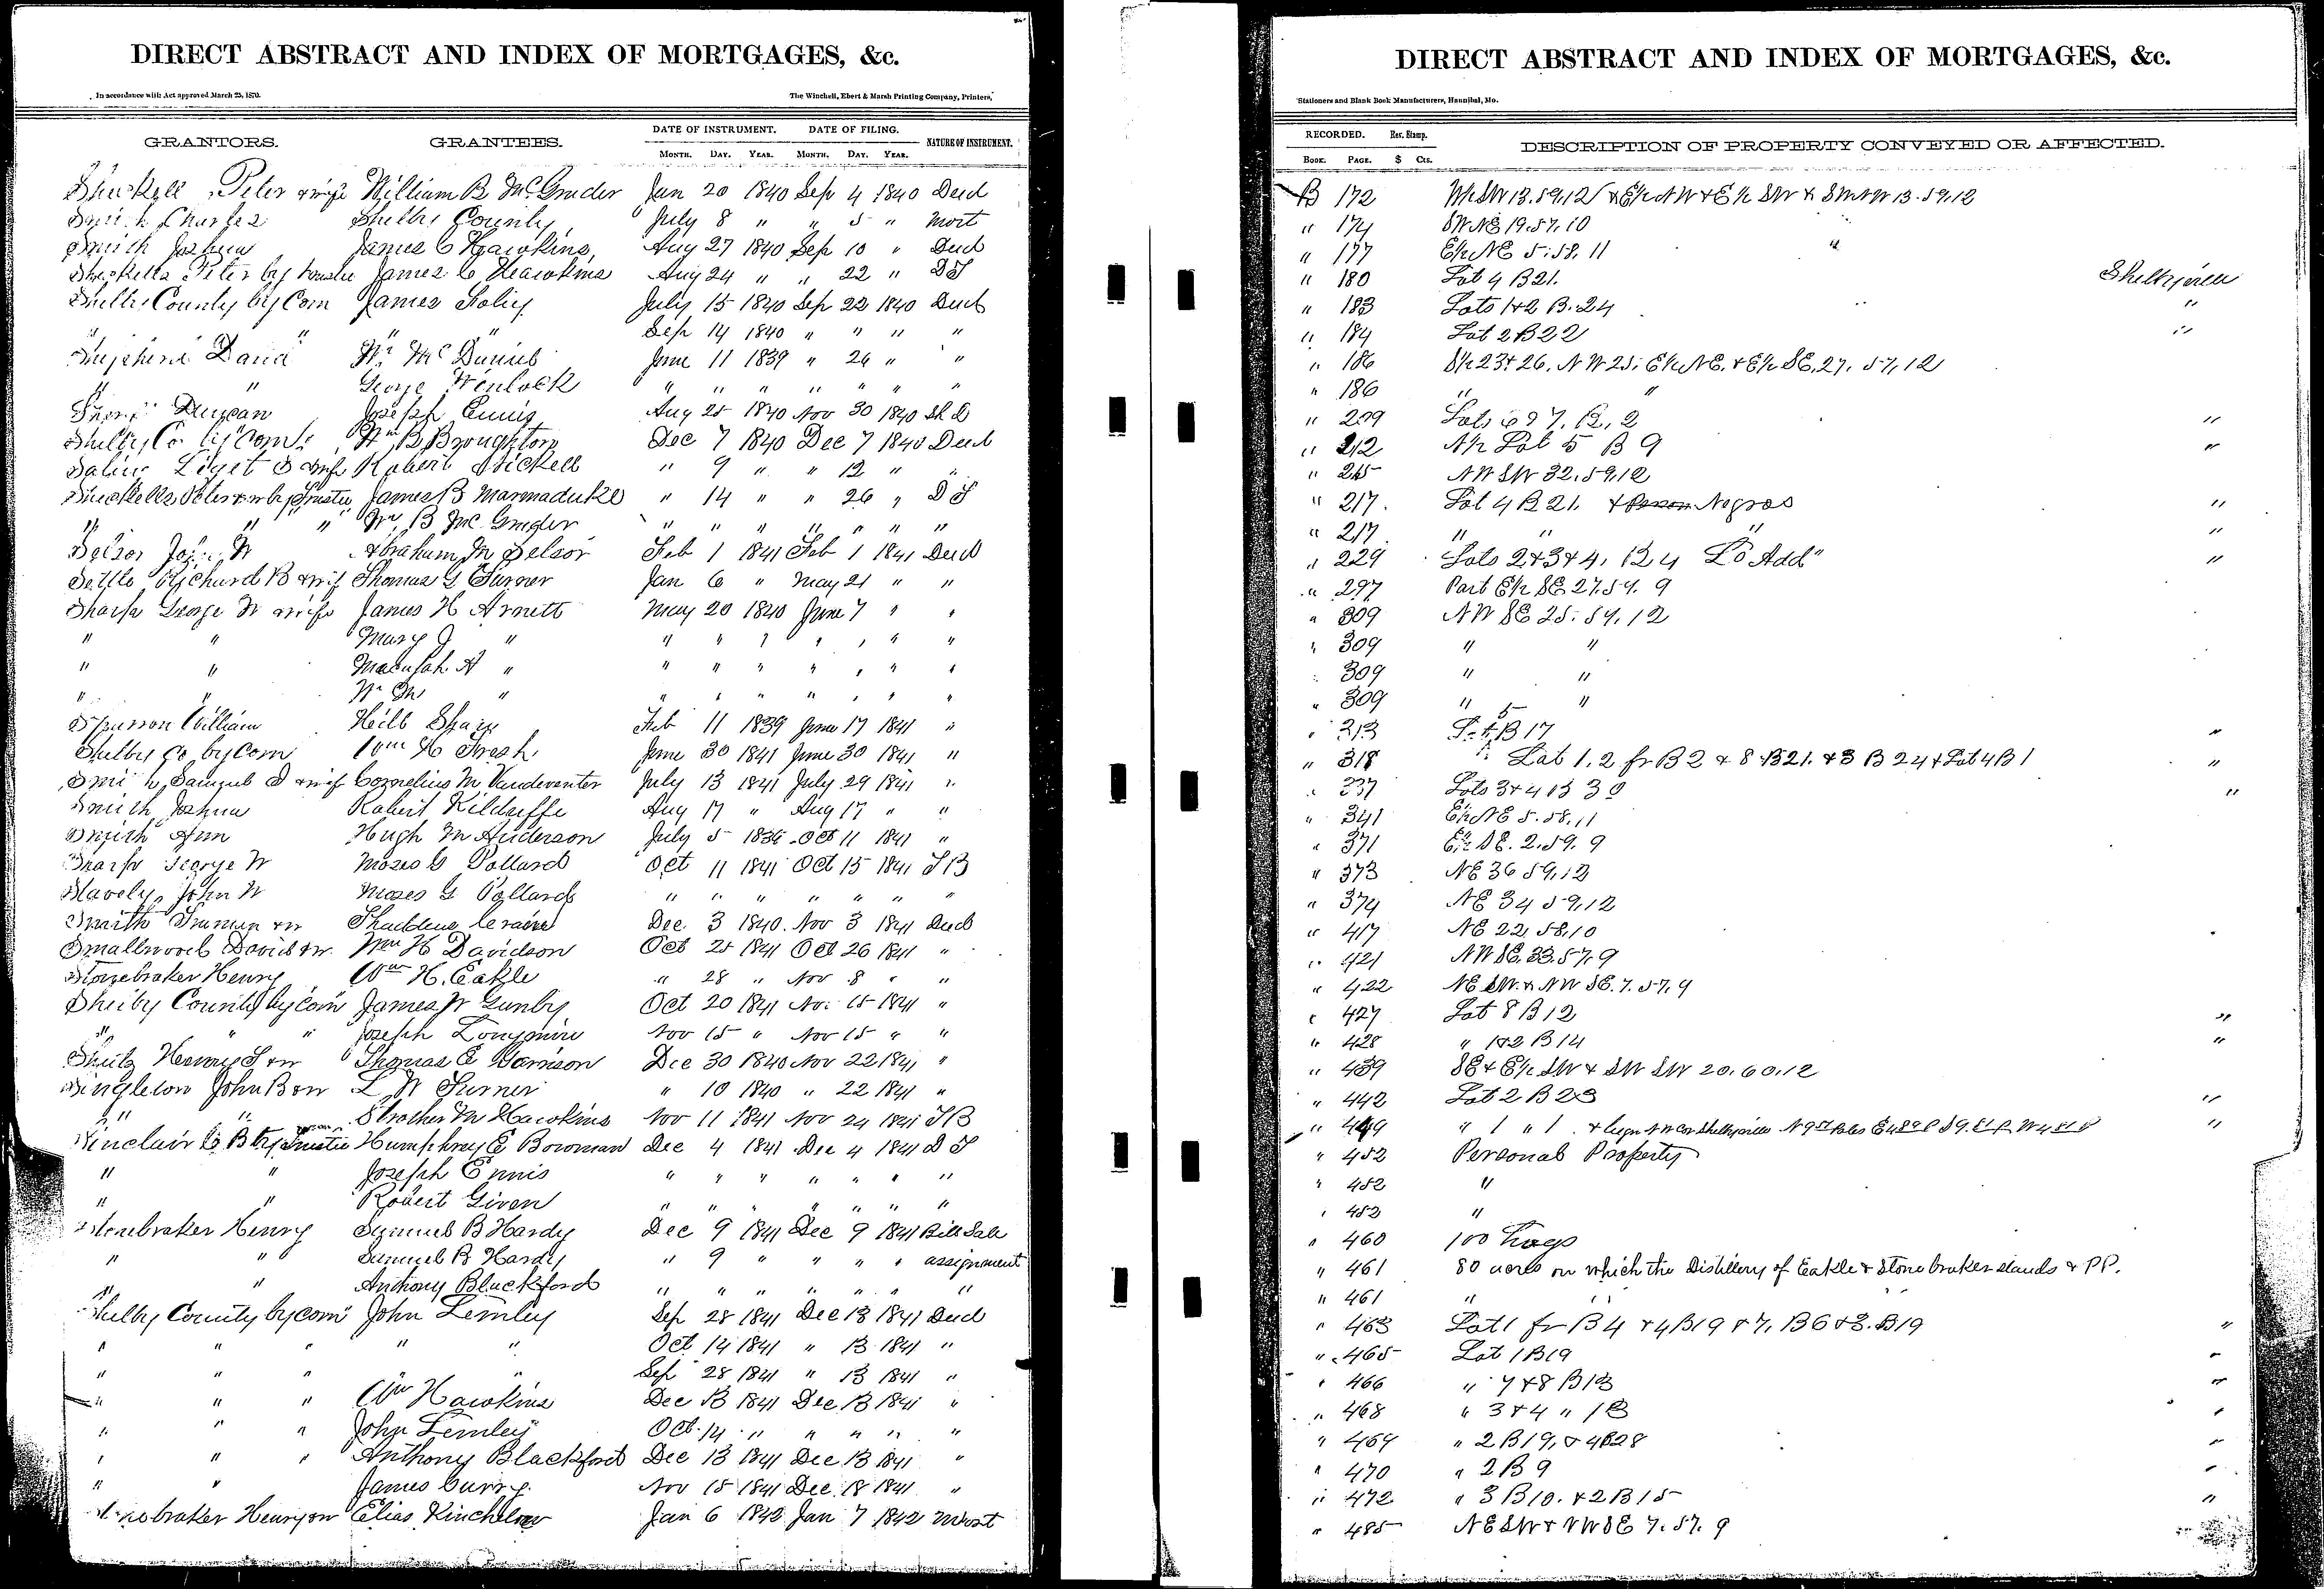 DIRECT ABSTRACT AND INDEX OF MORTGAGES, &c.
In accordance with Act approved March 25, 1870.
The Winchell, Ebert & Marsh Printing Company, Printers,
GRANTORS. GRANTEES. DATE OF INSTRUMENT. DATE OF FILING. NATURE OF INSTRUMENT.
MONTH. DAY. YEAR. MONTH. DAY. YEAR.
Peter & wife William B McGruder Jan 20 1840 Sep 4 1840 Deed
Smith Charles Shelby County July 8 " " 5 " Mort
Smith Joshua James C Hawkins, Aug 27 1840 Sep 10 " Deed
Peter by trustee James C Hawkins Aug 24 " " 22 " DT
Shelby County by Com James Foley July 15 1840 Sep 22 1840 Deed
" " " Sep 14 1840 " " " "
David Wm Mc June 11 1839 " 26 " "
" " George Winlock " " " " " " "
Duncan Joseph Ennis Aug 25 1840 Nov 30 1840 Sh D
Shelby Co by Com Wm B Broughton Dec 7 1840 Dec 7 1840 Deed
Robert " 9 " " 12 " "
Peter & w by Trustee James B Marmaduke " 14 " " 26 " DT
" " " Wm B McGruder " " " " " " "
Selsor John W Abraham M Selsor Feb 1 1841 Feb 1 1841 Deed
Settle Richard B & wif Thomas G Turner Jan 6 " May 21 " "
Sharp George W & wife James H Arnett May 20 1840 June 7 " "
" " Mary J " " " " " " " "
" " A " " " " " " " "
" " Wm M " " " " " " " "
William Feb 11 1839 June 17 1841 "
Shelby Co by Com Wm H June 30 1841 June 30 1841 "
Smith, Samuel & wif Cornelius M Vandeventer July 13 1841 July 29 1841 "
Smith Joshua Robert Kilduffe Aug 17 " Aug 17 " "
Smith Ann Hugh M Anderson July 5 1836 Oct 11 1841 "
Sharp George W Moses G Pollard Oct 11 1841 Oct 15 1841 TB
John W Moses G Pollard " " " " " " "
Smith & w Dec 3 1840 Nov 3 1841 Deed
Smallwood David & w Wm H Davidson Oct 25 1841 Oct 26 1841 "
Stonebraker Henry Wm H. Eakle " 28 " Nov 8 " "
Shelby County by Com James W Gunby Oct 20 1841 Nov 15 1841 "
" " " Joseph Nov 15 " Nov 15 " "
& w Thomas E Garrison Dec 30 1840 Nov 22 1841 "
Singleton John B & w L W Turner " 10 1840 " 22 1841 "
" " Strother M Hawkins Nov 11 1841 Nov 24 1841 TB
Sinclair C B by Trustee Humphrey E Bowman Dec 4 1841 Dec 4 1841 DT
" " Joseph Ennis " " " " " " "
" " Robert Given " " " " " " "
Stonebraker Henry Samuel B Hardy Dec 9 1841 Dec 9 1841 Bill Sale
" " Samuel B Hardy " 9 " " " " assignment
" " Anthony Blackford " " " " " " "
Shelby County by com John Lemley Sep 28 1841 Dec 13 1841 Deed
" " " " " Oct 14 1841 " 13 1841 "
" " " " Sep 28 1841 " 13 1841 "
" " " Wm Hawkins Dec 13 1841 Dec 13 1841 "
" " " John Lemley Oct 14 " " " " "
" " " Anthony Blackford Dec 13 1841 Dec 13 1841 "
" " James Nov 15 1841 Dec 18 1841 "
Stonebraker Henry & w Elias Kincheloe Jan 6 1842 Jan 7 1842 Mort
DIRECT ABSTRACT AND INDEX OF MORTGAGES, &c.
Stationers and Blank Book Manufacturers, Hannibal, Mo.
RECORDED. Rev. Stamp. DESCRIPTION OF PROPERTY CONVEYED OR AFFECTED.
BOOK. PAGE. $ Cts.
B 172 W½ SW 13.59.12 & E½ NW & E½ SW & SW NW 13.59.12
" 174 SW NE 19.57.10
" 177 E½ NE 5.58.11 "
" 180 Lot 4 B 21. Shelbyville
" 183 Lots 1 & 2 B. 24 "
" 184 Lot 2 B 22 "
" 186 S½ 23 & 26. NW 25. E½ NE. & E½ SE. 27. 57.12
" 186 " "
" 209 Lots 6 & 7. B. 2 "
" 212 N½ Lot 5 B 9 "
" 215 NW SW 32.59.12
" 217. Lot 4 B 21. & Negros "
" 217 " " "
" 229 Lots 2 & 3 & 4. B 4 So Add "
" 297 Part E½ SE 27.59.9
" 309 NW SE 25.59.12
" 309 " "
" 309 " "
" 309 " "
" 313 B 17 "
" 318 Lot 1.2 fr B 2 & 8 B 21. & 3 B 24 & Lot 4 B 1 "
" 337 Lots 3 & 4 B 30 "
" 341 E½ NE 5.58.11
" 371 E½ SE. 2.59.9
" 373 NE 36 59.12
" 374 NE 34 59.12
" 417 NE 22.58.10
" 421 NW SE. 33.57.9
" 422 NE SW. & NW SE. 7.57.9
" 427 Lot 8 B 12 "
" 428 " 1 & 2 B 14 "
" 439 SE & E½ SW & SW SW 20.60.12
" 442 Lot 2 B 23 "
" 449 " 1 " 1 & begn NW Cor Shelbyville "
" 452 Personal Property
" 452 "
" 452 "
" 460 100 hogs
" 461 80 acres on which the Distillery of Eakle & Stonebraker stands & PP.
" 461 " "
" 463 Lot 1 fr B 4 & 4 B 19 & 7. B 6 & 3. B 19 "
" 465 Lot 1 B 19 "
" 466 " 7 & 8 B 13 "
" 468 " 3 & 4 " 13 "
" 469 " 2 B 19, & 4 B 28 "
" 470 " 2 B 9 "
" 472 " 3 B 10. & 2 B 15 "
" 485 NE SW & NW SE 7.57.9